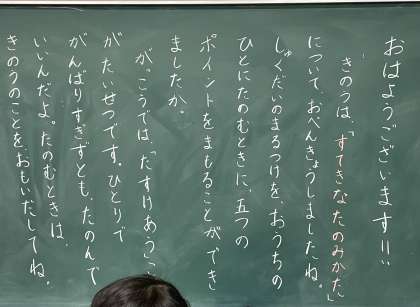 おはようございます!!
きのうは、「すてきなたのみかた。」
について、おべんきょうしましたね。
しゅくだいのまるつけを、おうちの
ひとにたのむときに、五つの
ポイントをまもることができ
ましたか。
がっこうでは、「たすけあう」こ
がたいせつです。ひとりで
がんばりすぎずとも、たのんで
いいんだよ。たのむときは、
きのうのことをおもいだしてね。